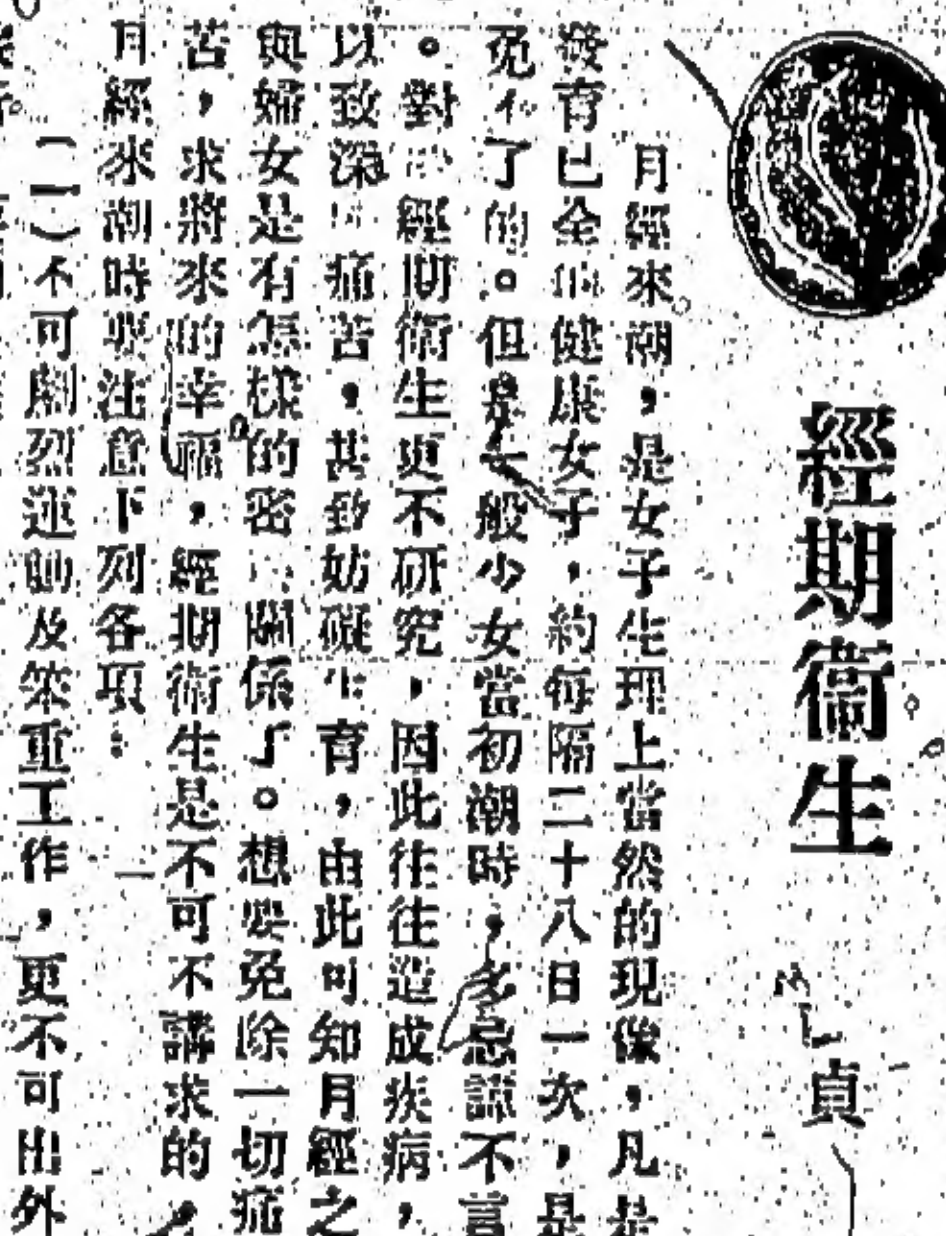 經期衞生
貞
月經來潮，是女子生理上當然的現像，凡是
發育已全的健康女子，約每隔二十八日一次，是
免不了的。但是一般少女當初潮時，多忌諱不言
。對 經期衞生更不研究，因此往往造成疾病，
以致深 痛苦，甚致妨礙生育，由此可知月經之
與婦女是有怎樣的密 關係 。想要免除一切痛
苦，求將來的幸福，經期衞生是不可不講求的，
月經來潮時要注意下列各項：
（一）不可劇烈運動及笨重工作，更不可出外